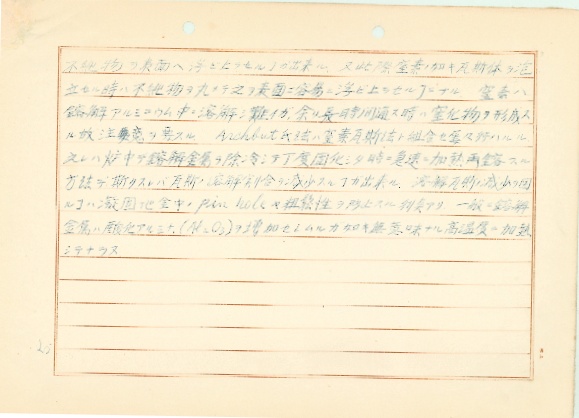 不純物ヲ表面ヘ浮ビ上ラセル﹁ガ出来ル、又此際窒素ノ如キ瓦斯体ヲ泡
立セル時ハ不純物ヲ表面ニ容易ニ浮ビ上ラセル 窒素ハ
熔解アルミニウム中ニ溶解シ難イガ、余リ長時間通ス時ハ窒化物ヲ形成ス
ル故注意ヲ要スル Archbutt氏法ハ窒素瓦斯法ト組合セ
之レハ炉中デ熔解金属ヲ除冷シテ丁度固化シタ時ニ急速ニ加熱再熔スル
方法デ斯クスレバ瓦斯ノ溶解割合ヲ減少スル﹁ガ出来ル、溶解瓦斯ノ減少ヲ図
ル﹁ハ凝固地金中ノ pin hole ヤ粗鬆性ヲ防止スル利点アリ 一般ニ熔解
金属ハ酸化アルミナ(Al₂O₃)ヲ増加セシムルガ如キ無意味ナル高温度ニ加熱
シテナラヌ
25